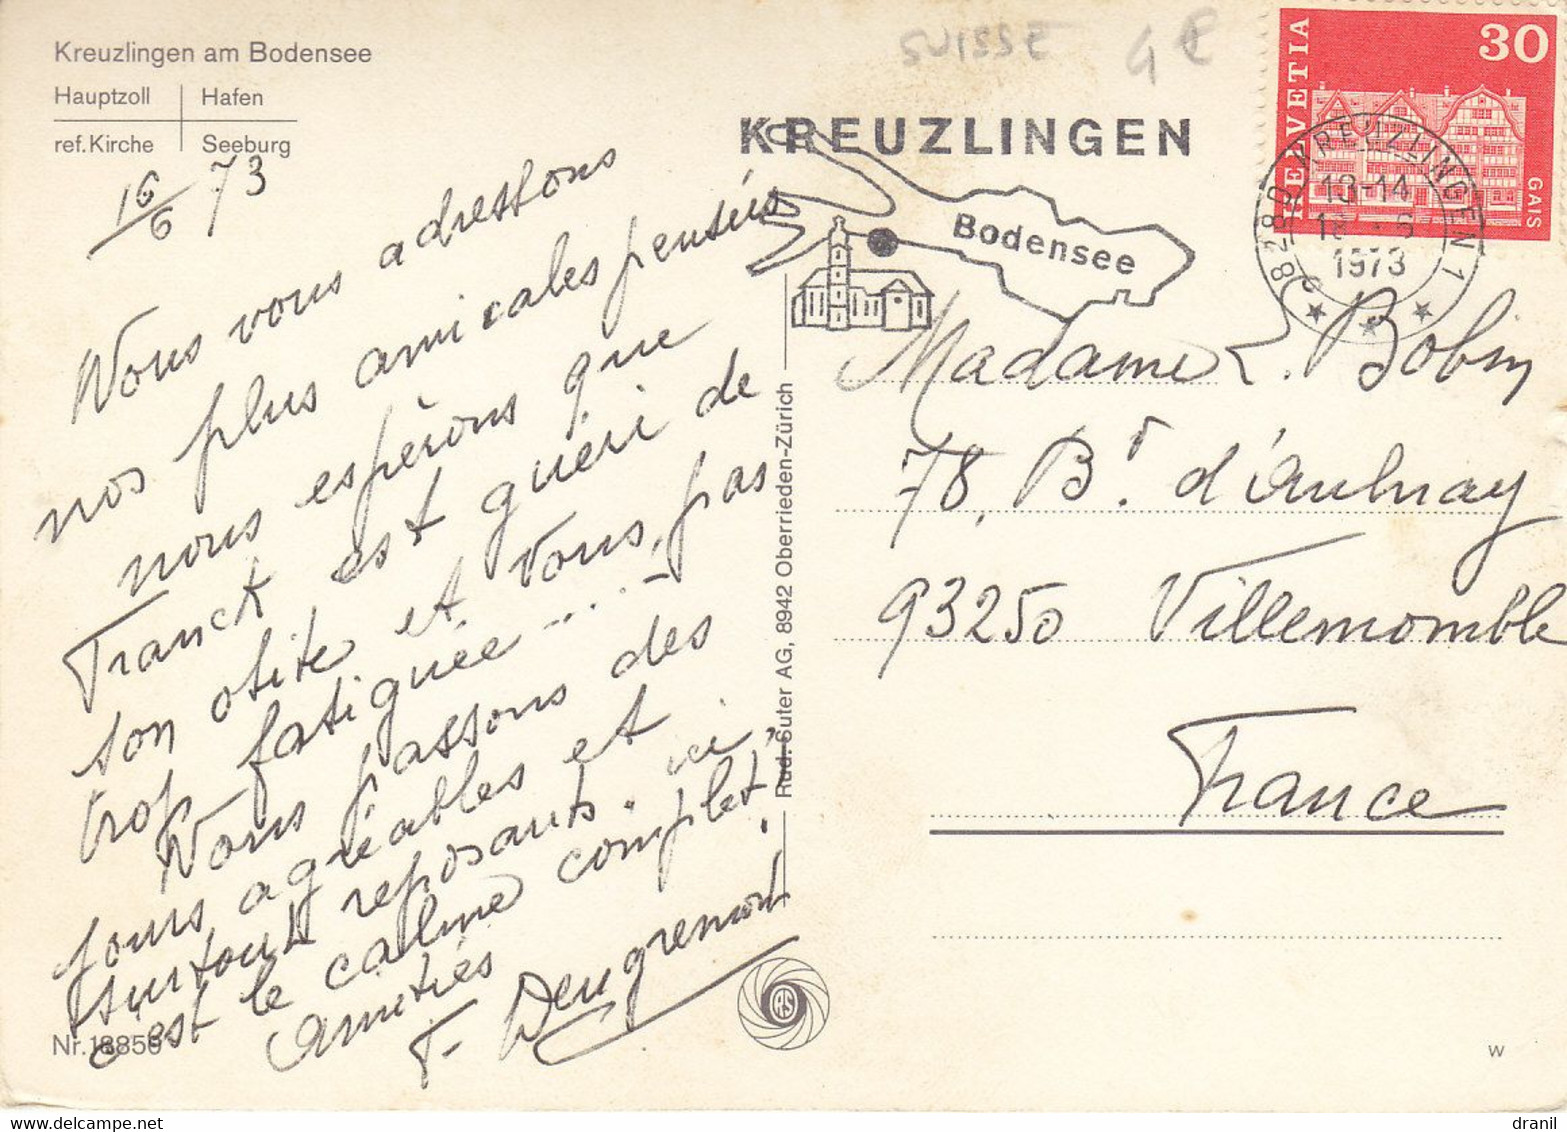 Kreuzlingen am Bodensee
Hauptzoll | Hafen
ref. Kirche | Seeburg
16/6 73
Nous vous adressons
nos plus amicales pensées
nous espérons que
Franck est guéri de
son otite et vous, pas
trop fatiguée .... -
Nous passons des
jours agréables et
surtout reposants. ici,
c'est le calme complet !
Amitiés
F. Deugremont
Nr. 18856
Rud. Suter AG, 8942 Oberrieden-Zürich
SUISSE 4€
KREUZLINGEN
Bodensee
HELVETIA
30
GAIS
8280 KREUZLINGEN 1
13-14
1973
Madame L. Bobin
78, Bd. d'Aulnay
93250 Villemomble
France
W
dranil